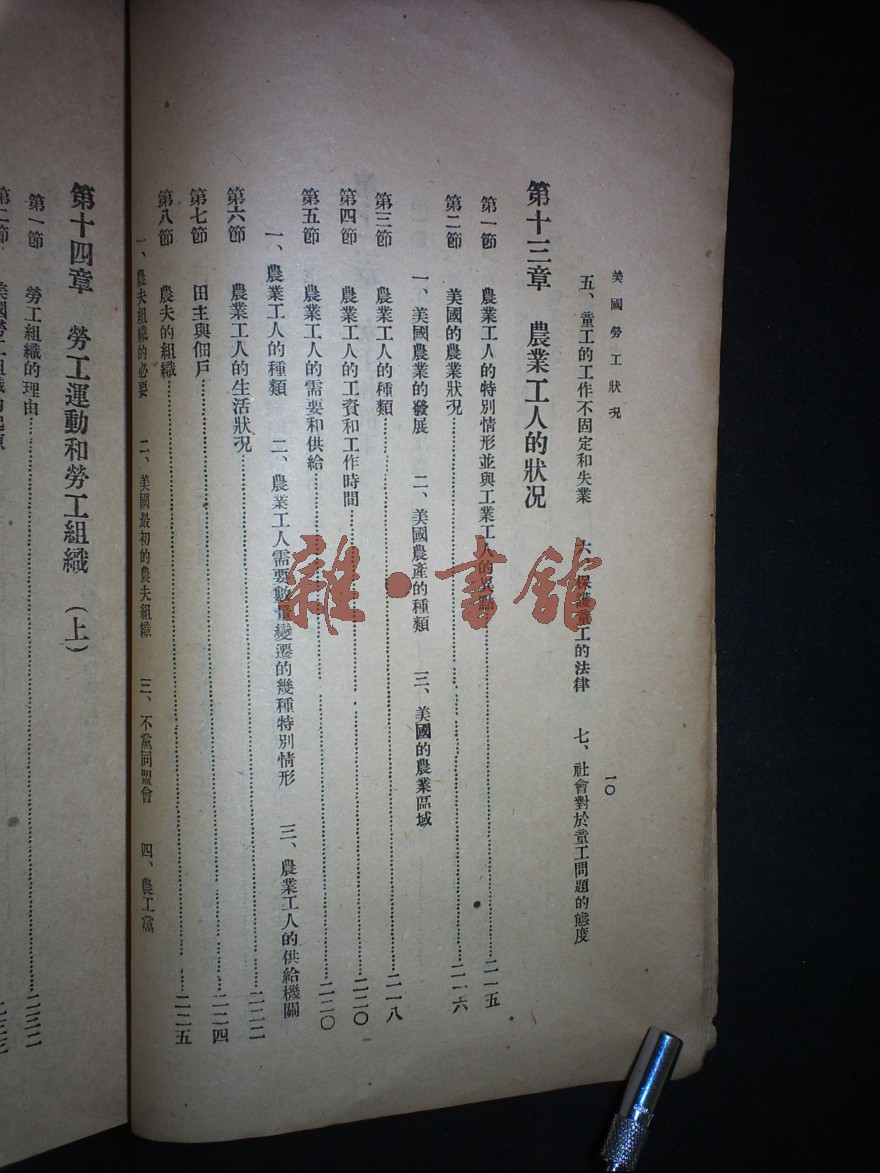 美國勞工狀況
一〇
五、童工的工作不固定和失業　六、保護童工的法律　七、社會對於童工問題的態度
第十三章　農業工人的狀況
第一節　農業工人的特別情形並與工業工人的異點……二一五
第二節　美國的農業狀況……二一六
一、美國農業的發展　二、美國農產的種類　三、美國的農業區域
第三節　農業工人的種類……二一八
第四節　農業工人的工資和工作時間……二二〇
第五節　農業工人的需要和供給……二二〇
一、農業工人的種類　二、農業工人需要數量變遷的幾種特別情形　三、農業工人的供給機關
第六節　農業工人的生活狀況……二二二
第七節　田主與佃戶……二二四
第八節　農夫的組織……二二五
一、農夫組織的必要　二、美國最初的農夫組織　三、不黨同盟會　四、農工黨
第十四章　勞工運動和勞工組織　(上)
第一節　勞工組織的理由……二三二
第二節　美國勞工組織的起原……二三三
雜·書館